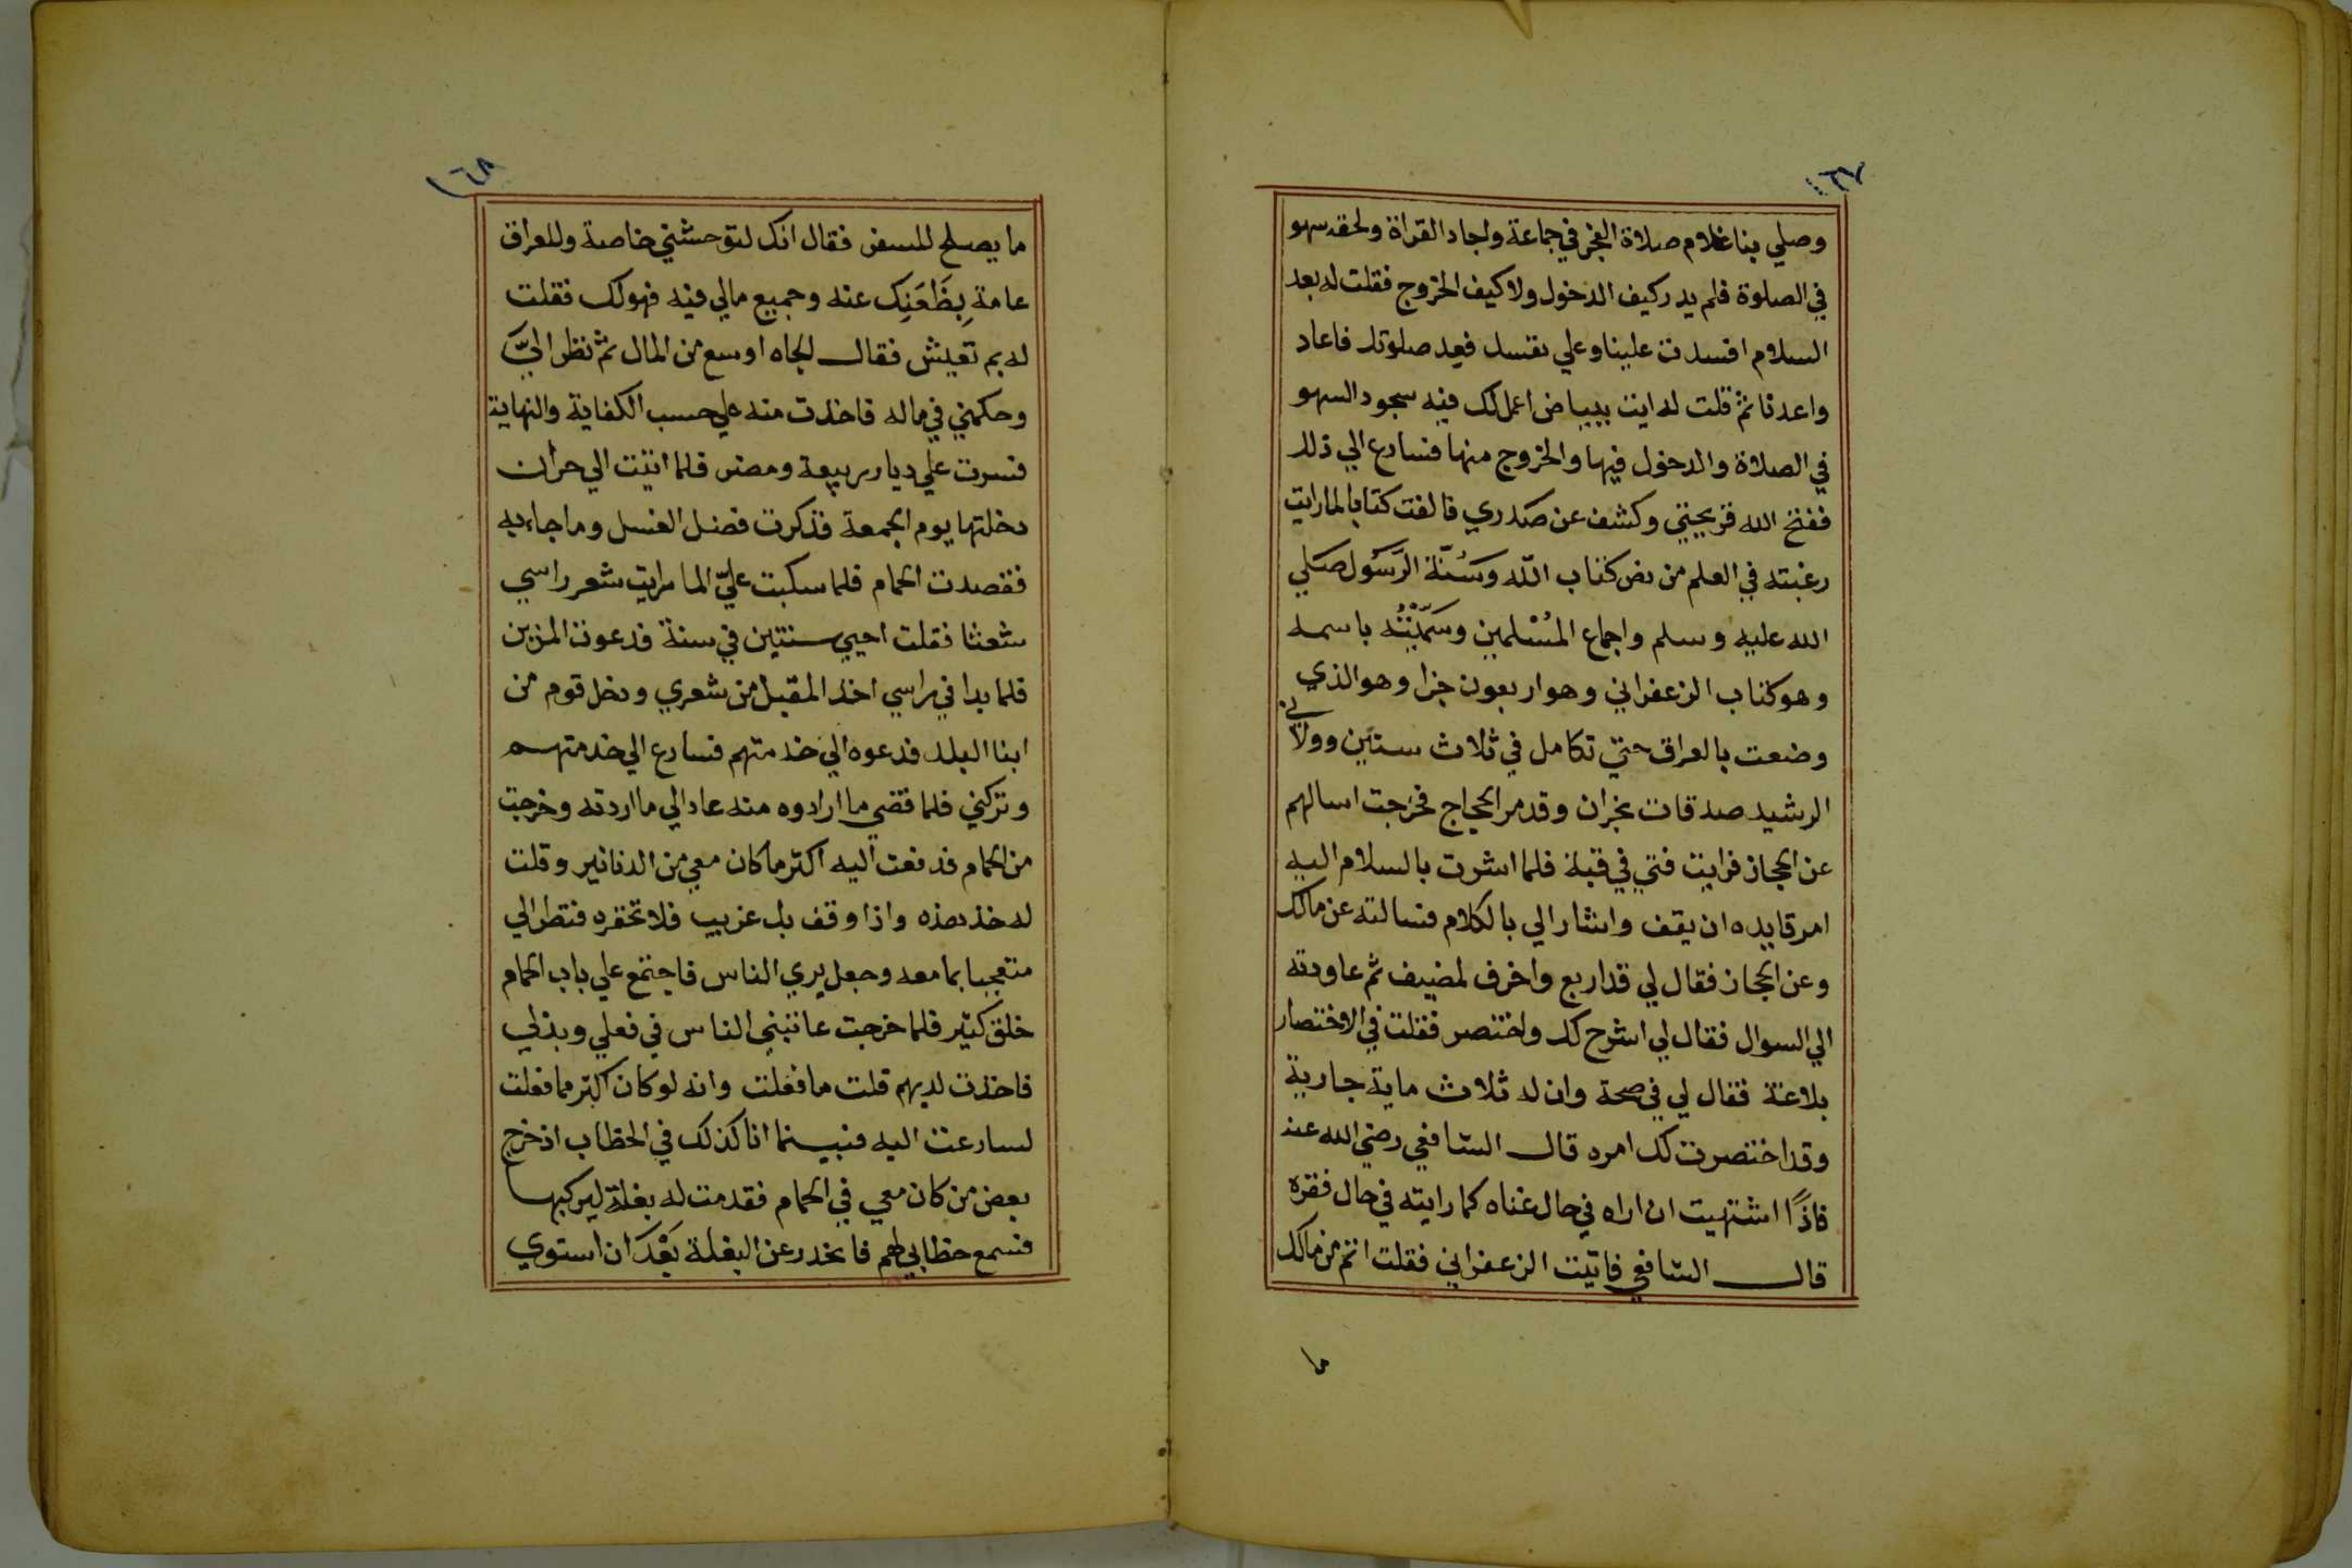 ١٦٧
وصلي بنا غلام صلاة الفجر في جماعة واجاد القراة ولحقه سهو
في الصلوة فلم يدر كيف الدخول ولا كيف الخروج فقلت له بعد
السلام افسدت علينا وعلي نفسك فعد صلوتك فاعاد
واعدنا ثم قلت له ايت ببياض اعمل لك فيه سجود السهو
في الصلاة والدخول فيها والخروج منها فسارع الي ذلك
ففتح الله قريحتي وكشف عن صدري فالفت كتابا لما رايت
رغبته في العلم من نص كتاب الله وسُنّة الرَّسُول صَلي
الله عليه وسلم واجماع المُسْلمين وسَمَّيْتُه باسمه
وهو كتاب الزعفراني وهو اربعون جزا وهو الذي
وضعت بالعراق حتي تكامل في ثلاث سنين وولاني
الرشيد صدقات نجران وقدم الحجاج فخرجت اسالهم
عن الحجاز فرايت فتي في قبة فلما اشرت بالسلام اليه
امر قايده ان يقف واشار الي بالكلام فسالته عن مالك
وعن الحجاز فقال لي قد اربع واخرف لمضيف ثم عاودته
الي السوال فقال لي اشرح لك واختصر فقلت في الاختصار
بلاغة فقال لي في صحة وان له ثلاث ماية جارية
وقد اختصرت لك امره قال الشافعي رضي الله عنه
فاذًا اشتهيت ان اراه في حال غناه كما رايته في حال فقره
قال الشافعي فاتيت الزعفراني فقلت انتم من مالك
ما
١٦٨
ما يصلح للسفر فقال انك لتوحشني خاصة وللعراق
عامة بِظَعَنِك عنه وجميع مالي فيه فهو لك فقلت
له بم تعيش فقال الجاه اوسع من المال ثم نظر اليَّ
وحكمني في ماله فاخذت منه علي حسب الكفاية والنهاية
فسرت علي ديار ربيعة ومضر فلما اتيت الي حران
دخلتها يوم الجمعة فذكرت فضل الغسل وما جاء به
فقصدت الحمام فلما سكبت عليّ الما رايت شعر راسي
شعثا فقلت احيي سنتين في سنة فدعوت المزين
فلما بدا في راسي اخذ المقبل من شعري ودخل قوم من
ابنا البلد فدعوه الي خدمتهم فسارع الي خدمتهم
وتركني فلما قضي ما ارادوه منه عاد الي ما اردته وخرجت
من الحمام فدفعت اليه اكثر ما كان معي من الدنانير وقلت
له خذ هذه واذا وقف بك غريب فلا تحقره فنظر الي
متعجبا بما معه وجعل يري الناس فاجتمع علي باب الحمام
خلق كثير فلما خرجت عاتبني الناس في فعلي وبذلي
فاخذت لديهم قلت ما فعلت وانه لو كان اكثر مما فعلت
لسارعت اليه فبينما انا كذلك في الخطاب اذ خرج
بعض من كان معي في الحمام فقدمت له بغلة ليركبها
فسمع خطابي لهم فانحدر عن البغلة بَعْدَ ان استوي